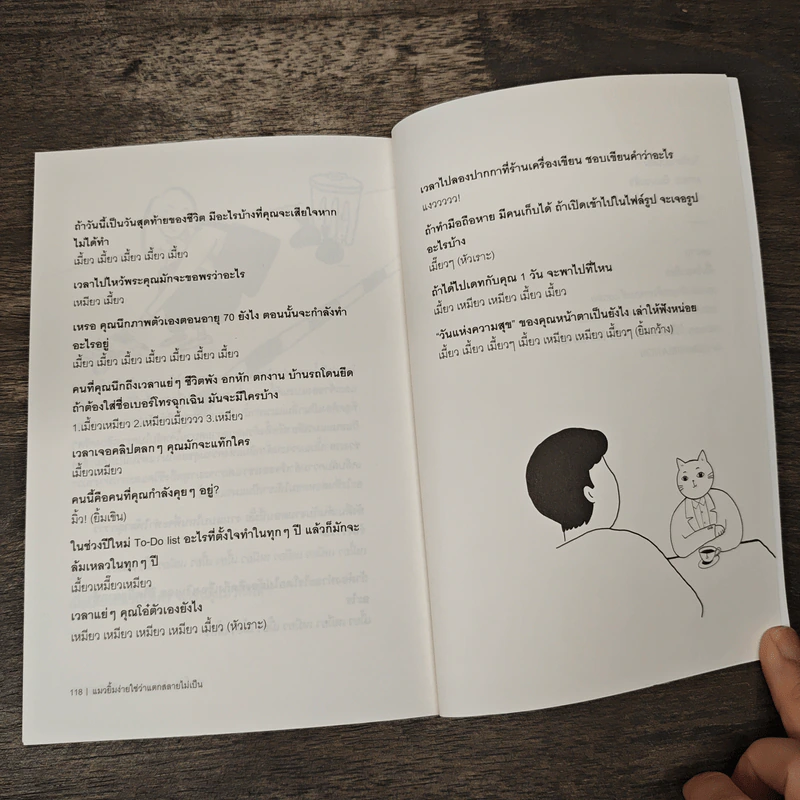 ถ้าวันนี้เป็นวันสุดท้ายของชีวิต มีอะไรบ้างที่คุณจะเสียใจหาก
ไม่ได้ทำ
เมี้ยว เมี้ยว เมี้ยว เมี้ยว เมี้ยว
เวลาไปไหว้พระคุณมักจะขอพรว่าอะไร
เหมียว เมี้ยว
เหรอ คุณนึกภาพตัวเองตอนอายุ 70 ยังไง ตอนนั้นจะกำลังทำ
อะไรอยู่
เมี้ยว เมี้ยว เมี้ยว เมี้ยว เมี้ยว เมี้ยว เมี้ยว
คนที่คุณนึกถึงเวลาแย่ๆ ชีวิตพัง อกหัก ตกงาน บ้านรถโดนยึด
ถ้าต้องใส่ชื่อเบอร์โทรฉุกเฉิน มันจะมีใครบ้าง
1.เมี้ยวเหมียว 2.เหมียวเมี้ยววว 3.เหมียว
เวลาเจอคลิปตลกๆ คุณมักจะแท็กใคร
เมี้ยวเหมียว
คนนี้คือคนที่คุณกำลังคุยๆ อยู่?
มิ้ว! (ยิ้มเขิน)
ในช่วงปีใหม่ To-Do list อะไรที่ตั้งใจทำในทุกๆ ปี แล้วก็มักจะ
ล้มเหลวในทุกๆ ปี
เมี้ยวเหมี๊ยวเหมียว
เวลาแย่ๆ คุณโอ๋ตัวเองยังไง
เหมียว เหมียว เหมียว เหมียว เมี้ยว (หัวเราะ)
118 | แมวยิ้มง่ายใช่ว่าแตกสลายไม่เป็น
เวลาไปลองปากกาที่ร้านเครื่องเขียน ชอบเขียนคำว่าอะไร
แงววววว!
ถ้าทำมือถือหาย มีคนเก็บได้ ถ้าเปิดเข้าไปในไฟล์รูป จะเจอรูป
อะไรบ้าง
เมี๊ยวๆ (หัวเราะ)
ถ้าได้ไปเดทกับคุณ 1 วัน จะพาไปที่ไหน
เมี้ยว เหมียว เหมียว เมี้ยว เมี้ยว
“วันแห่งความสุข” ของคุณหน้าตาเป็นยังไง เล่าให้ฟังหน่อย
เมี้ยว เมี้ยว เมี้ยวๆ เมี้ยว เหมียว เหมียว เมี้ยวๆ (ยิ้มกว้าง)